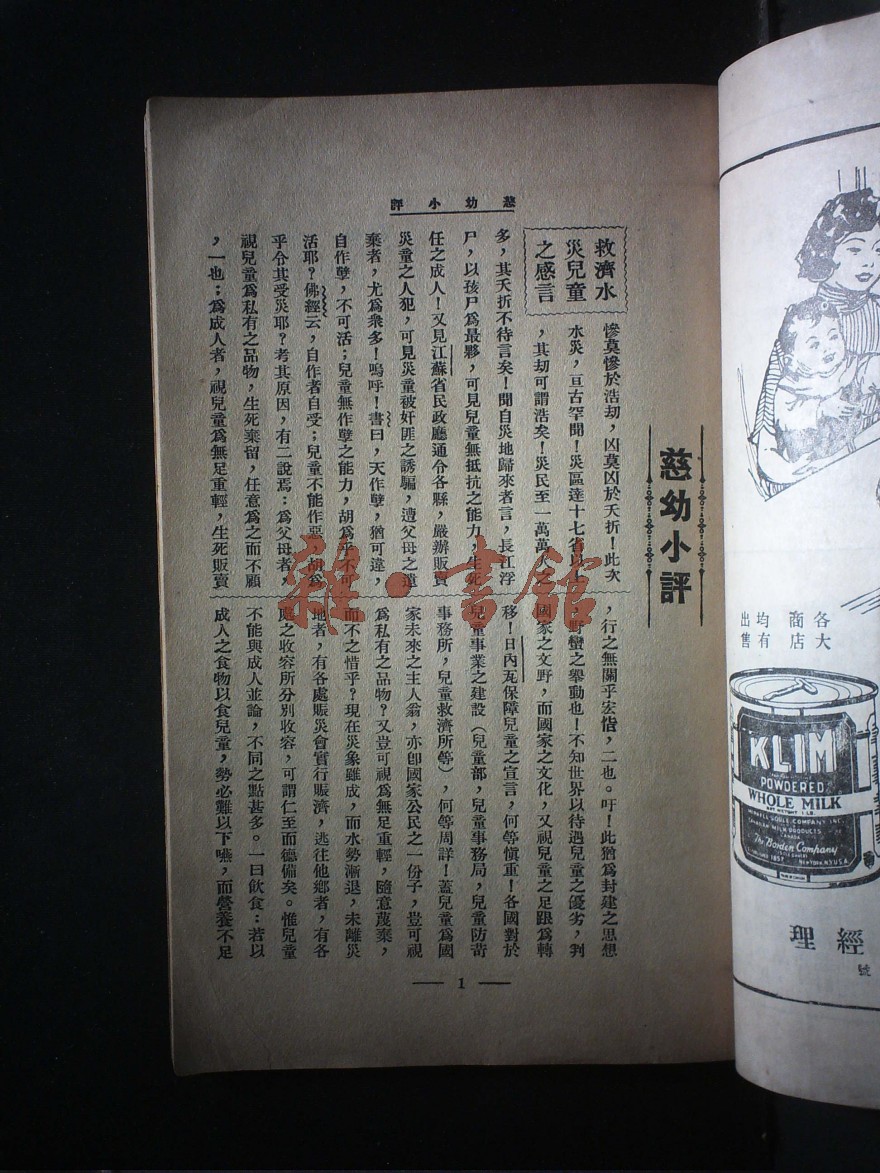 慈幼小評
慈幼小評
救濟水
災兒童
之感言
慘莫慘於浩劫，凶莫凶於夭折！此次
水災，亘古罕聞！災區達十七省以上
，其劫可謂浩矣！災民至一萬萬人之
多，其夭折不待言矣！聞自災地歸來者言，長江浮
尸，以孩尸爲最夥，可見兒童無抵抗之能力，生死
任之成人！又見江蘇省民政廳通令各縣，嚴辦販賣
災童之人犯，可見災童被奸匪之誘騙，遭父母之遺
棄者，尤爲衆多！嗚呼！書曰，天作孽，猶可違，
自作孽，不可活；兒童無作孽之能力，胡爲乎不可
活耶？佛經云，自作者自受；兒童不能作惡，胡爲
乎令其受災耶？考其原因，有二說焉：爲父母者，
視兒童爲私有之品物，生死棄留，任意爲之而不顧
，一也；爲成人者，視兒童爲無足重輕，生死販賣
，行之無關乎宏恉，二也。吁！此猶爲封建之思想
，野蠻之舉動也！不知世界以待遇兒童之優劣，判
國家之文野，而國家之文化，又視兒童之足跟爲轉
移！日內瓦保障兒童之宣言，何等慎重！各國對於
兒童事業之建設（兒童部，兒童事務局，兒童防苛
事務所，兒童救濟所等），何等周詳！蓋兒童爲國
家未來之主人翁，亦卽國家公民之一份子，豈可視
爲私有之品物？又豈可視爲無足重輕，隨意蔑棄，
而不之惜乎？現在災象雖成，而水勢漸退，未離災
地者，有各處賑災會實行賑濟，逃往他鄉者，有各
處之收容所分別收容，可謂仁至而德備矣。惟兒童
不能與成人並論，不同之點甚多。一曰飲食：若以
成人之食物以食兒童，勢必難以下嚥，而營養不足
— 1 —
雜·書館
各大
商店
均有
出售
KLIM
POWDERED
WHOLE MILK
NET WEIGHT 1 LB.
The Borden Company
NEW YORK, N.Y. U.S.A.
經理
號